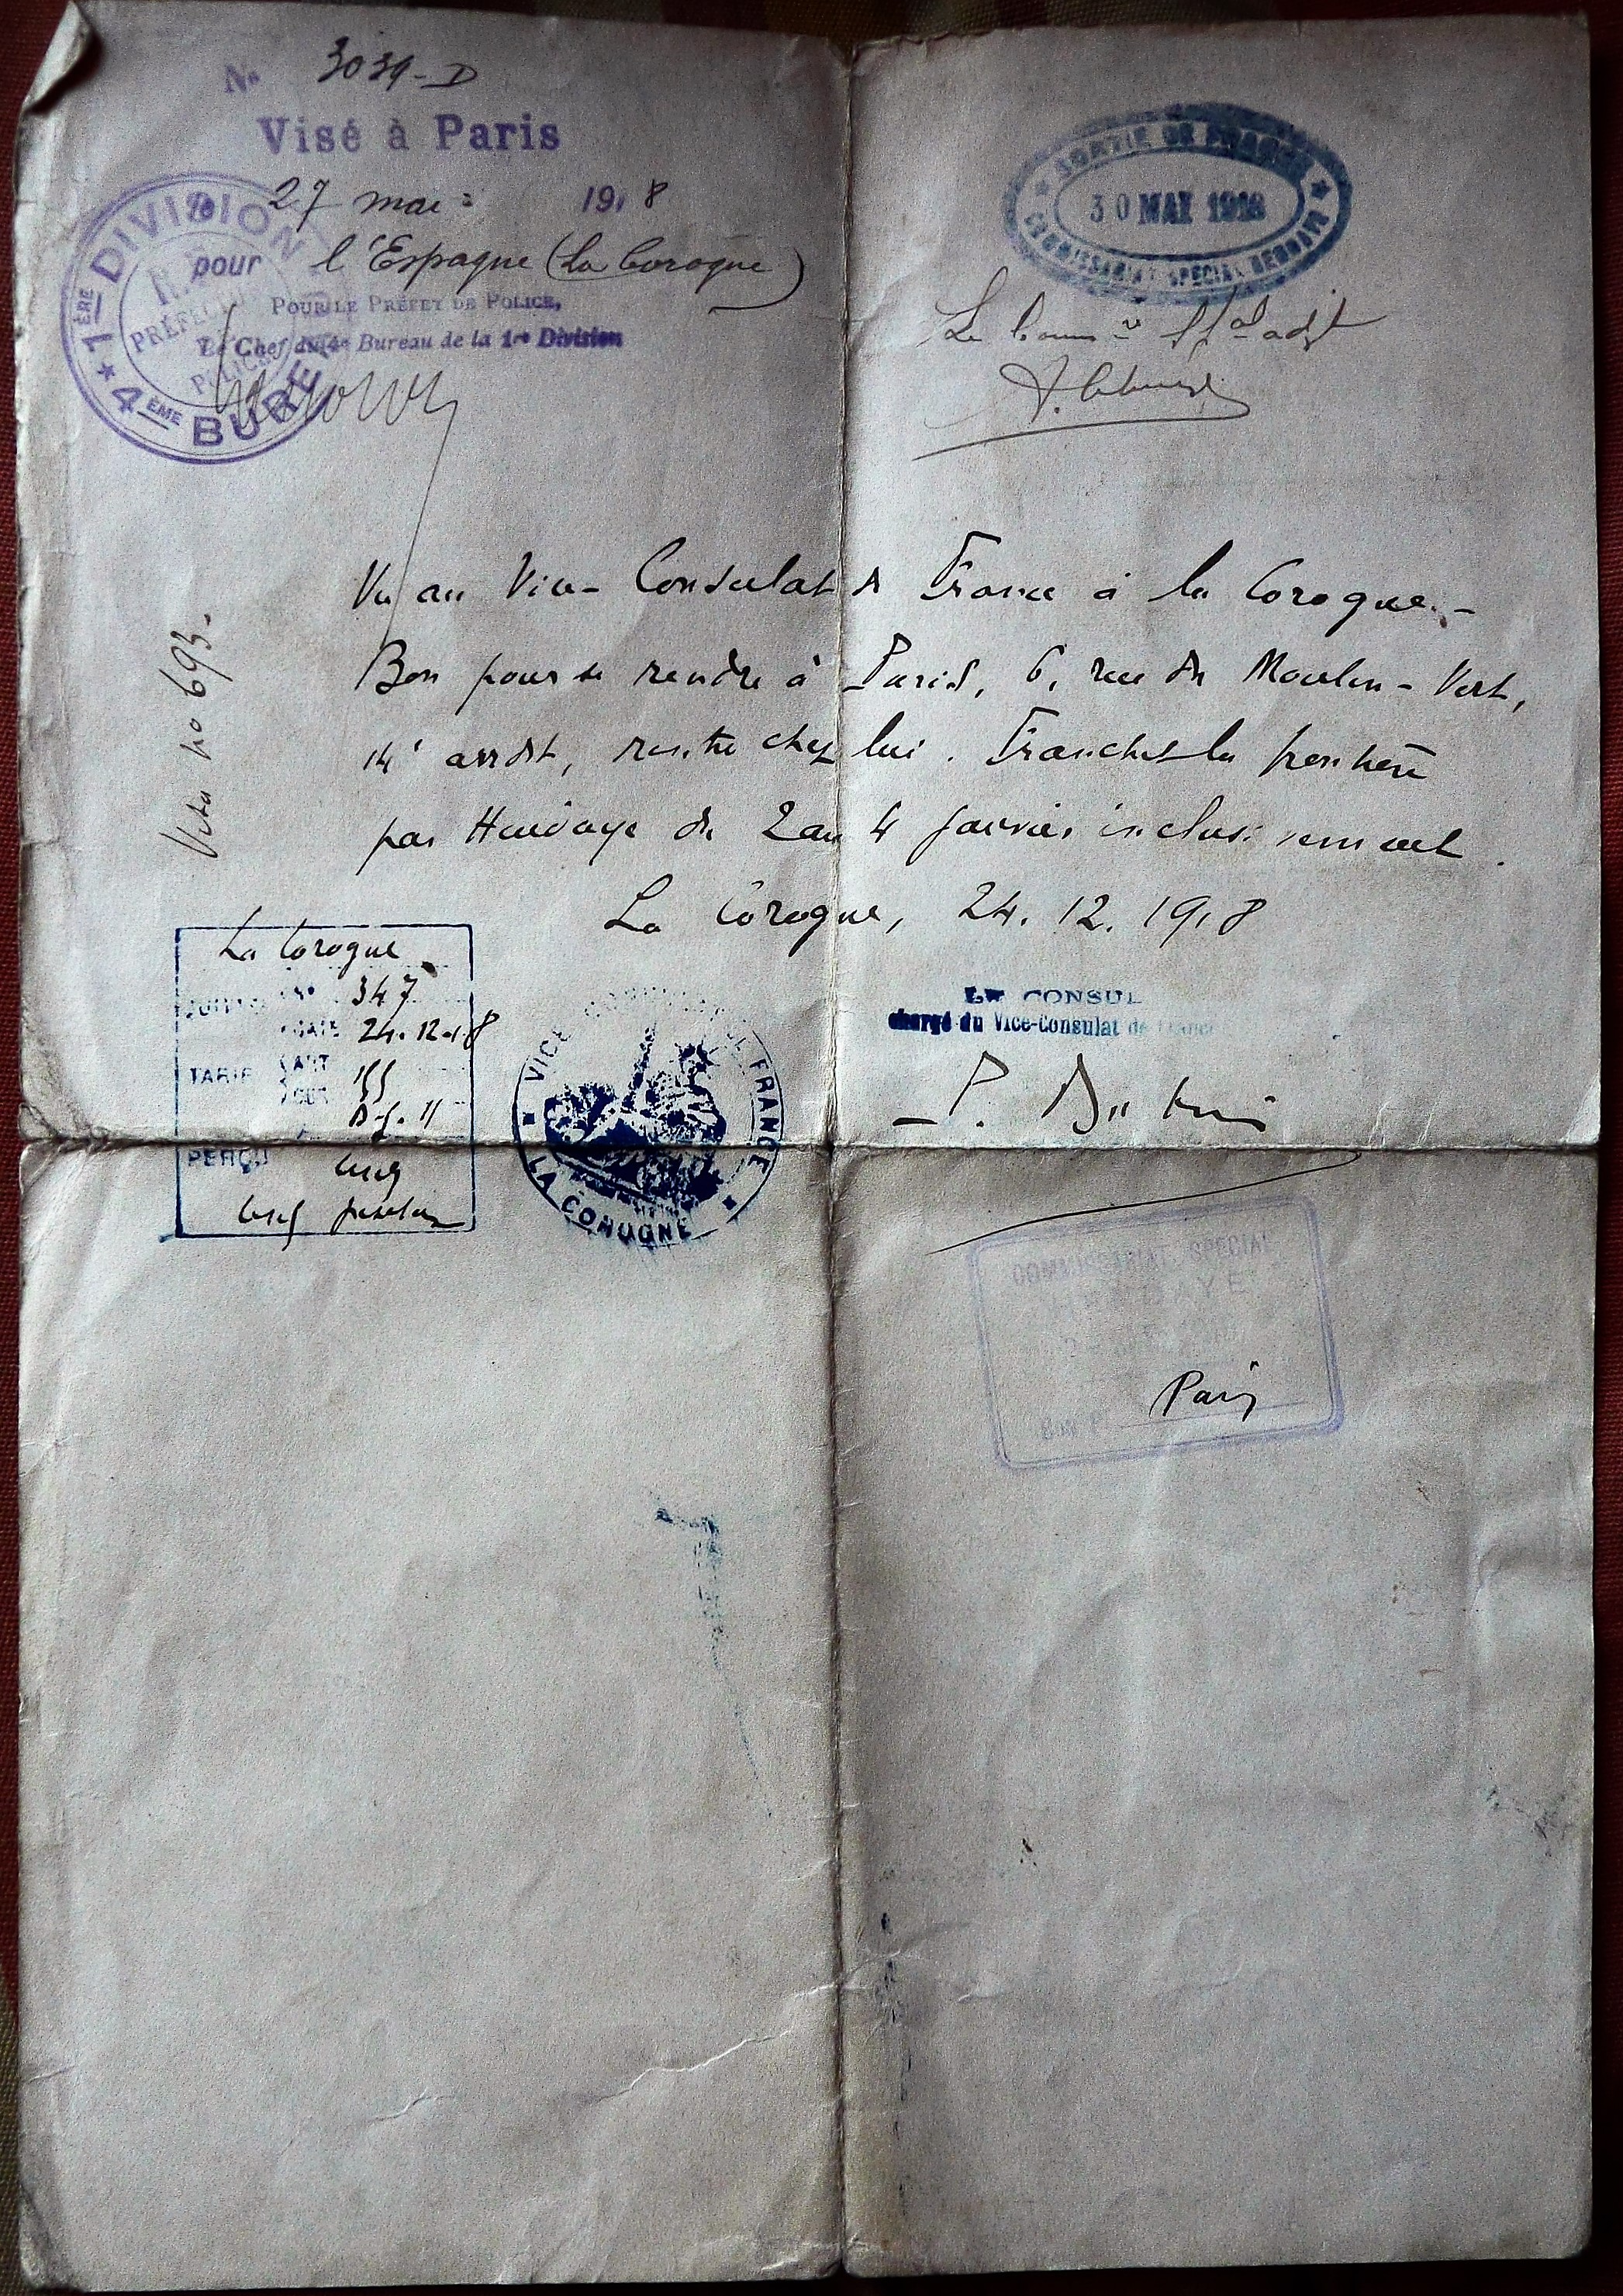 No 3039-D
Visé à Paris
le 27 mai 1918
pour l'Espagne (La Corogne)
POUR LE PRÉFET DE POLICE,
Le Chef du 4e Bureau de la 1re Division
1ÈRE DIVISION
PRÉFECTURE
POLICE
4ÈME BUREAU
SORTIE DE FRANCE
30 MAI 1918
COMMISSARIAT SPECIAL
Vu au Vice-Consulat de France à la Corogne.-
Bon pour se rendre à Paris, 6, rue du Moulin-Vert,
14e arrdt, rentre chez lui. Franchit la frontière
par Hendaye du 2 au 4 janvier inclusivement.
La Corogne, 24.12.1918
Visa no 693-
La Corogne
No 347
DATE 24.12.18
TARIF ART 155
PERÇU cinq
LE CONSUL
chargé du Vice-Consulat de France
VICE CONSULAT DE FRANCE
LA COROGNE
COMMISSARIAT SPECIAL
HENDAYE
Bon pr Paris